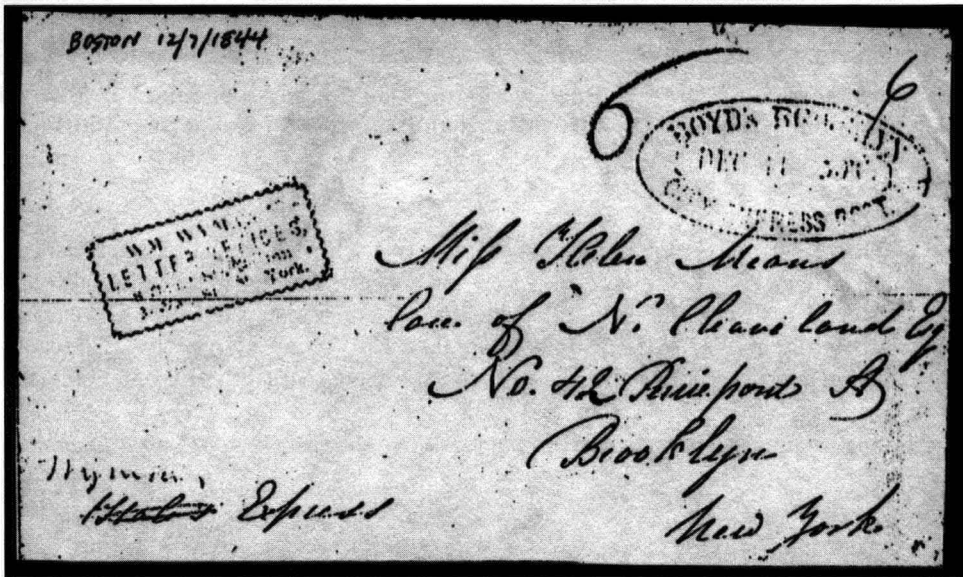 BOSTON 12/7/1844
6
6
BOYD'S
DEC 11
CITY EXPRESS POST.
WM WYMAN
LETTER OFFICES,
York.
Miss Helen Means
Care of N. Cleaveland Esq
No. 42 Pierrepont St
Brooklyn
New York
Wyman,
Express